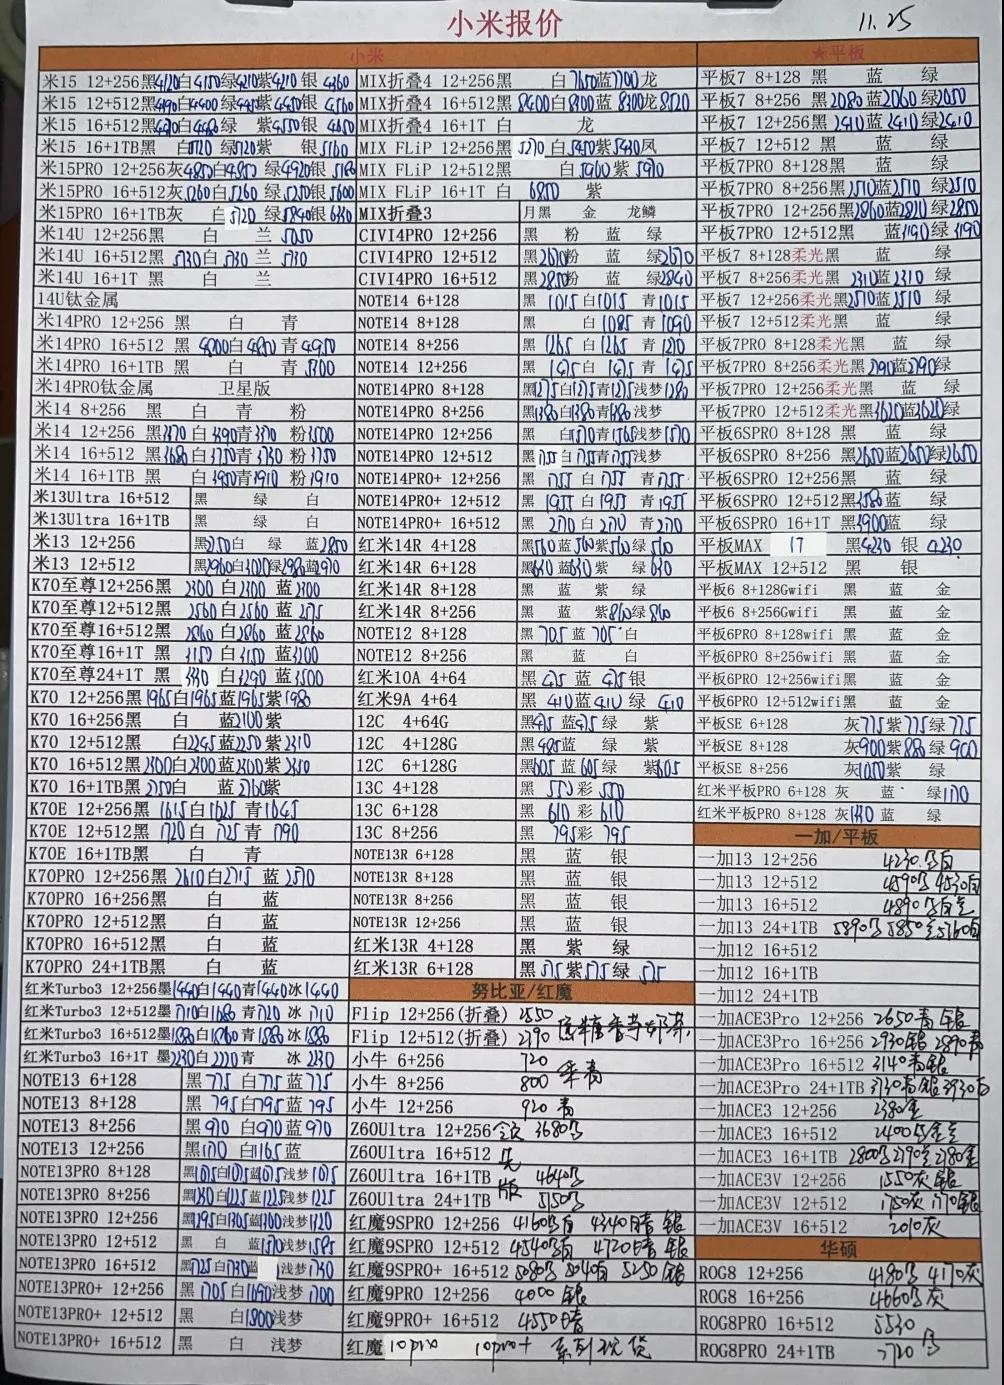 小米报价
11.25
小米
米15 12+256黑4120白4150绿4210紫4210 银 4260
米15 12+512黑4390白4400绿 紫4450银 4560
米15 16+512黑 白4480绿 紫4550银 4650
米15 16+1TB黑 白5120 绿5120紫 银5160
米15PRO 12+256灰4850白4850 绿4920银
米15PRO 16+512灰5260白5260 绿5250银5600
米15PRO 16+1TB灰 白5720 绿5840银
米14U 12+256黑 白 兰 5050
米14U 16+512黑5130白5130 兰 5130
米14U 16+1T 黑 白 兰
14U钛金属
米14PRO 12+256 黑 白 青
米14PRO 16+512 黑 白4850 青4950
米14PRO 16+1TB 黑 白 青 5300
米14PRO钛金属 卫星版
米14 8+256 黑 白 青 粉
米14 12+256 黑3370 白3390青3370 粉3500
米14 16+512 黑3680白3750青3730 粉3750
米14 16+1TB 黑 白3950青3910 粉3910
米13Ultra 16+512 黑 绿 白
米13Ultra 16+1TB 黑 绿 白
米13 12+256 黑 白 绿 蓝2850
米13 12+512 黑2960白3020绿2980蓝2970
K70至尊12+256黑 2300 白2300 蓝2300
K70至尊12+512黑 2560 白2560 蓝
K70至尊16+512黑 2860 白2860 蓝2860
K70至尊16+1T 黑 3150 白3150 蓝3200
K70至尊24+1T 黑 白3290 蓝3500
K70 12+256黑1965白1965蓝1965紫1980
K70 16+256黑 白 蓝2100紫
K70 12+512黑 白2245蓝2250紫2310
K70 16+512黑2300白2300蓝2300紫2350
K70 16+1TB黑2750白 蓝2760紫
K70E 12+256黑 1615白1625 青1645
K70E 12+512黑1720白 1725青 1790
K70E 16+1TB黑 白 青
K70PRO 12+256黑 2610白2715 蓝 2570
K70PRO 16+256黑 白 蓝
K70PRO 12+512黑 白 蓝
K70PRO 16+512黑 白 蓝
K70PRO 24+1TB黑 白 蓝
红米Turbo3 12+256墨1440白1440青1440冰1440
红米Turbo3 12+512墨1710白1680青1720冰1710
红米Turbo3 16+512墨1880白1860青1880冰1880
红米Turbo3 16+1T 墨2230白2220青 冰2230
NOTE13 6+128 黑 715 白715 蓝715
NOTE13 8+128 黑 795 白795 蓝795
NOTE13 8+256 黑 970 白970 蓝970
NOTE13 12+256 黑1170 白1165蓝
NOTE13PRO 8+128 黑1075白1075蓝1075浅梦1075
NOTE13PRO 8+256 黑 白1225蓝1225浅梦1225
NOTE13PRO 12+256 黑1295白1305蓝1300浅梦1320
NOTE13PRO 12+512 黑 白 蓝1570浅梦1595
NOTE13PRO 16+512 黑1725白1730蓝 浅梦1730
NOTE13PRO+ 12+256 黑1705白1690浅梦1700
NOTE13PRO+ 12+512 黑 白1800浅梦
NOTE13PRO+ 16+512 黑 白 浅梦
MIX折叠4 12+256黑 白7650蓝7700龙
MIX折叠4 16+512黑8400白8300蓝8300龙8520
MIX折叠4 16+1T 白 龙
MIX FLiP 12+256黑 5270 白5450紫5430凤
MIX FLiP 12+512黑 白5960紫5970
MIX FLiP 16+1T 白 6850 紫
MIX折叠3 月黑 金 龙鳞
CIVI4PRO 12+256 黑 粉 蓝 绿
CIVI4PRO 12+512 黑2670粉 蓝 绿2670
CIVI4PRO 16+512 黑2850粉 蓝 绿2840
NOTE14 6+128 黑 1015 白1015 青1015
NOTE14 8+128 黑 白1085 青1090
NOTE14 8+256 黑 1265 白1265 青1270
NOTE14 12+256 黑 1475 白1475 青1475
NOTE14PRO 8+128 黑1275白1275青1275浅梦1280
NOTE14PRO 8+256 黑1380白1380青1380浅梦
NOTE14PRO 12+256 黑 白1570青1565浅梦1570
NOTE14PRO 12+512 黑1755白1755青1755浅梦
NOTE14PRO+ 12+256 黑 1755 白1755 青1755
NOTE14PRO+ 12+512 黑 1955 白1955 青1955
NOTE14PRO+ 16+512 黑 2170 白2170 青2170
红米14R 4+128 黑560蓝560紫560绿560
红米14R 6+128 黑630蓝630紫 绿630
红米14R 8+128 黑 蓝 紫 绿
红米14R 8+256 黑 蓝 紫860绿860
NOTE12 8+128 黑 705蓝 705 白
NOTE12 8+256 黑 蓝 白
红米10A 4+64 黑 435 蓝435银
红米9A 4+64 黑 410蓝410 绿 410
12C 4+64G 黑435 蓝435 绿 紫
12C 4+128G 黑485蓝 绿 紫
12C 6+128G 黑605 蓝605 绿 紫605
13C 4+128 黑 550彩550
13C 6+128 黑 610 彩610
13C 8+256 黑 795彩 795
NOTE13R 6+128 黑 蓝 银
NOTE13R 8+128 黑 蓝 银
NOTE13R 8+256 黑 蓝 银
NOTE13R 12+256 黑 蓝 银
红米13R 4+128 黑 紫 绿
红米13R 6+128 黑575紫575绿 575
努比亚/红魔
Flip 12+256(折叠) 2550
Flip 12+512(折叠) 2790
小牛 6+256 720
小牛 8+256 800
小牛 12+256 920 青
Z60Ultra 12+256 3680
Z60Ultra 16+512
Z60Ultra 16+1TB 版 4640
Z60Ultra 24+1TB 5150
红魔9SPRO 12+256 4160 4340暗 银
红魔9SPRO 12+512 4540 4720暗 银
红魔9SPRO+ 16+512 5080 5040 5250 银
红魔9PRO 12+256 4000 银
红魔9PRO+ 16+512 4550暗
红魔10pro 10pro+ 系列现货
★平板
平板7 8+128 黑 蓝 绿
平板7 8+256 黑2080蓝2060绿2050
平板7 12+256 黑2410蓝2410绿2410
平板7 12+512 黑 蓝 绿
平板7PRO 8+128黑 蓝 绿
平板7PRO 8+256黑2510蓝2510 绿2510
平板7PRO 12+256黑2860蓝2820绿2850
平板7PRO 12+512黑 蓝3190绿3190
平板7 8+128柔光黑 蓝 绿
平板7 8+256柔光黑 2310蓝2310 绿
平板7 12+256柔光黑2570蓝2510 绿
平板7 12+512柔光黑 蓝 绿
平板7PRO 8+128柔光黑 蓝 绿
平板7PRO 8+256柔光黑2790蓝2790绿
平板7PRO 12+256柔光黑 蓝 绿
平板7PRO 12+512柔光黑3620蓝3620绿
平板6SPRO 8+128 黑 蓝 绿
平板6SPRO 8+256 黑2650蓝2650绿2650
平板6SPRO 12+256黑 蓝 绿
平板6SPRO 12+512黑3580蓝 绿
平板6SPRO 16+1T 黑3900蓝 绿
平板MAX 17 黑4230 银 4230
平板MAX 12+512 黑 银
平板6 8+128Gwifi 黑 蓝 金
平板6 8+256Gwifi 黑 蓝 金
平板6PRO 8+128wifi 黑 蓝 金
平板6PRO 8+256wifi 黑 蓝 金
平板6PRO 12+256wifi黑 蓝 金
平板6PRO 12+512wifi黑 蓝 金
平板SE 6+128 灰775紫775绿775
平板SE 8+128 灰900紫880绿900
平板SE 8+256 灰1050紫 绿
红米平板PRO 6+128 灰 蓝 绿1170
红米平板PRO 8+128 灰 蓝 绿
一加/平板
一加13 12+256 4230
一加13 12+512 4590 4530
一加13 16+512 4890
一加13 24+1TB 5890 5850 5760
一加12 16+512
一加12 16+1TB
一加12 24+1TB
一加ACE3Pro 12+256 2650青银
一加ACE3Pro 16+256 2930银 2890青
一加ACE3Pro 16+512 3140青银
一加ACE3Pro 24+1TB 3730青银3930
一加ACE3 12+256 2380金
一加ACE3 16+512 2400
一加ACE3 16+1TB 2800 2790 2780金
一加ACE3V 12+256 1550灰银
一加ACE3V 12+512 1750灰 1770银
一加ACE3V 16+512 2010灰
华硕
ROG8 12+256 4180 4170灰
ROG8 16+256 4660灰
ROG8PRO 16+512 5530
ROG8PRO 24+1TB 7720